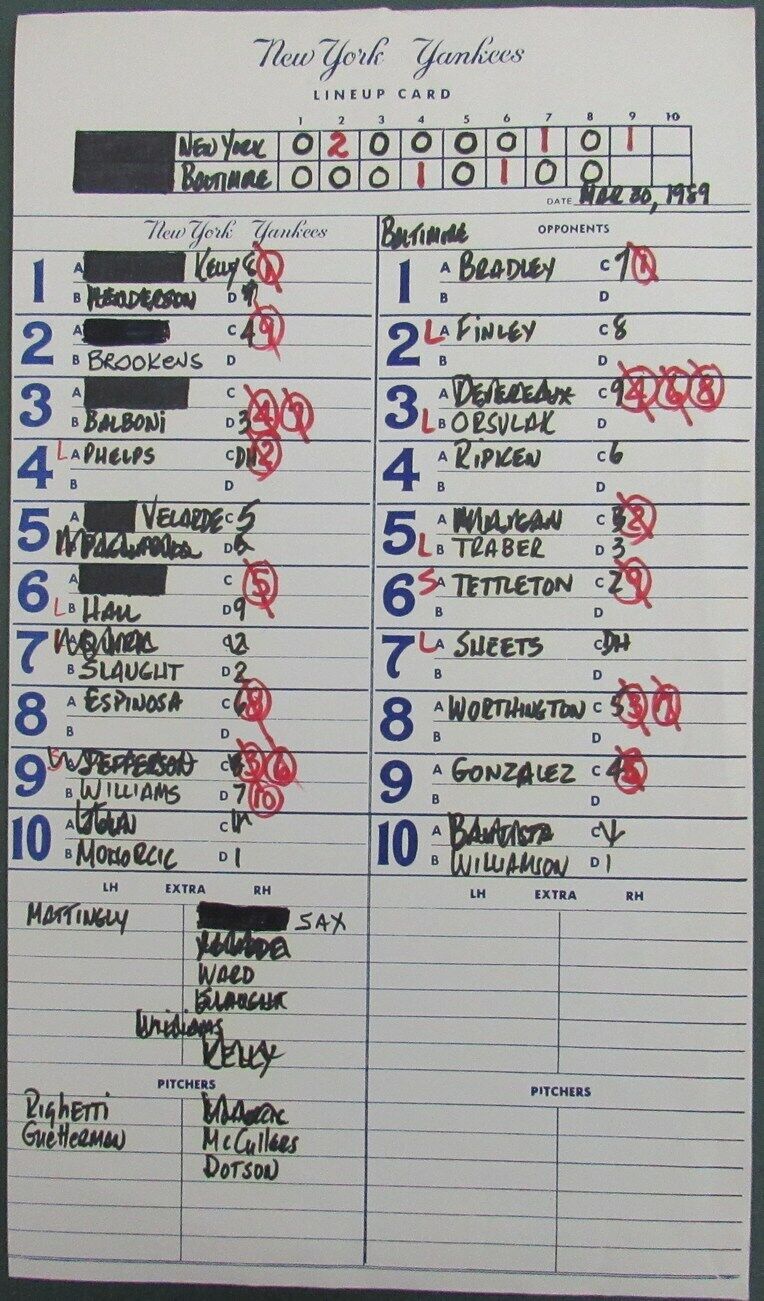 New York Yankees
LINEUP CARD
1 2 3 4 5 6 7 8 9 10
NEW YORK 0 2 0 0 0 0 1 0 1
BALTIMORE 0 0 0 1 0 1 0 0
DATE MAR 30, 1989
New York Yankees
BALTIMORE OPPONENTS
1 A KELLY 8
B HENDERSON D
2 A C 4 9
B BROOKENS D
3 A C 4 7
B BALBONI D 3
4 L A PHELPS C DH 2
B D
5 A VELARDE C 5
D 6
6 A C 5
L B HALL D 9
7 2
B SLAUGHT D 2
8 A ESPINOSA C 6 8
B D
9 S JEFFERSON C 8 3 6
B WILLIAMS D 7 10
10 A C
B MOHORCIC D 1
1 A BRADLEY C 7
B D
2 L A FINLEY C 8
B D
3 A DEVEREAUX C 9 4 6 8
L B ORSULAK D
4 A RIPKEN C 6
B D
5 A MILLIGAN C 3 2
L B TRABER D 3
6 S A TETTLETON C 2 9
B D
7 L A SHEETS C DH
B D
8 A WORTHINGTON C 5 3 7
B D
9 A GONZALEZ C 4 5
B D
10 A BAUTISTA C
B WILLIAMSON D 1
LH EXTRA RH
MATTINGLY SAX
WARD
SLAUGHT
WILLIAMS
KELLY
PITCHERS
RIGHETTI
GUETTERMAN McCULLERS
DOTSON
LH EXTRA RH
PITCHERS